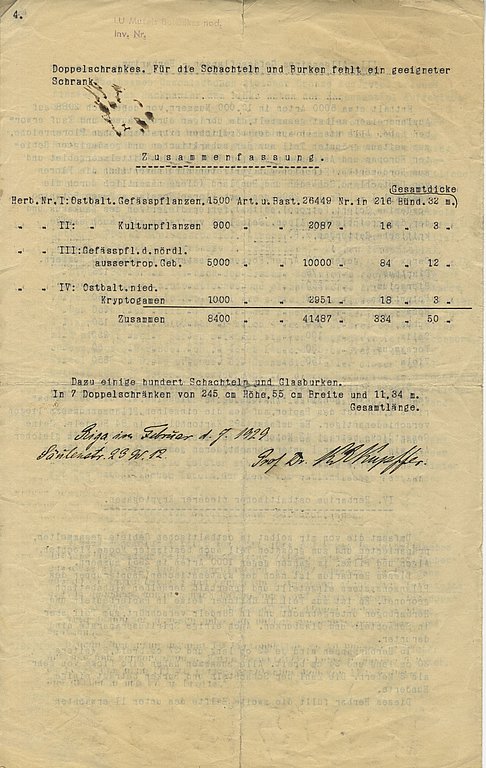 4.
LU Muzejs
Inv. Nr.
Doppelschrankes. Für die Schachteln und Burken fehlt ein geeigneter
Schrank.
Zusammenfassung.
(Gesamtdicke
Herb. Nr. I: Ostbalt. Gefässpflanzen, 1500 Art. u. Bast. 26449 Nr. in 216 Bünd. 32 m.)
„ „ II: „ Kulturpflanzen 900 „ 2087 „ 16 „ 3 „
„ „ III: Gefässpfl. d. nördl.
aussertrop. Geb. 5000 „ 10000 „ 84 „ 12 „
„ „ IV: Ostbalt. nied.
Kryptogamen 1000 „ 2951 „ 18 „ 3 „
Zusammen 8400 „ „ 41487 „ 334 „ 50 „
Dazu einige hundert Schachteln und Glasburken.
In 7 Doppelschränken von 245 cm Höhe, 55 cm Breite und 11,34 m.
Gesamtlänge.
Riga, im Februar d. J. 1929
Säulenstr. 23 W. 12.
Prof. Dr. K. R. Kupffer.